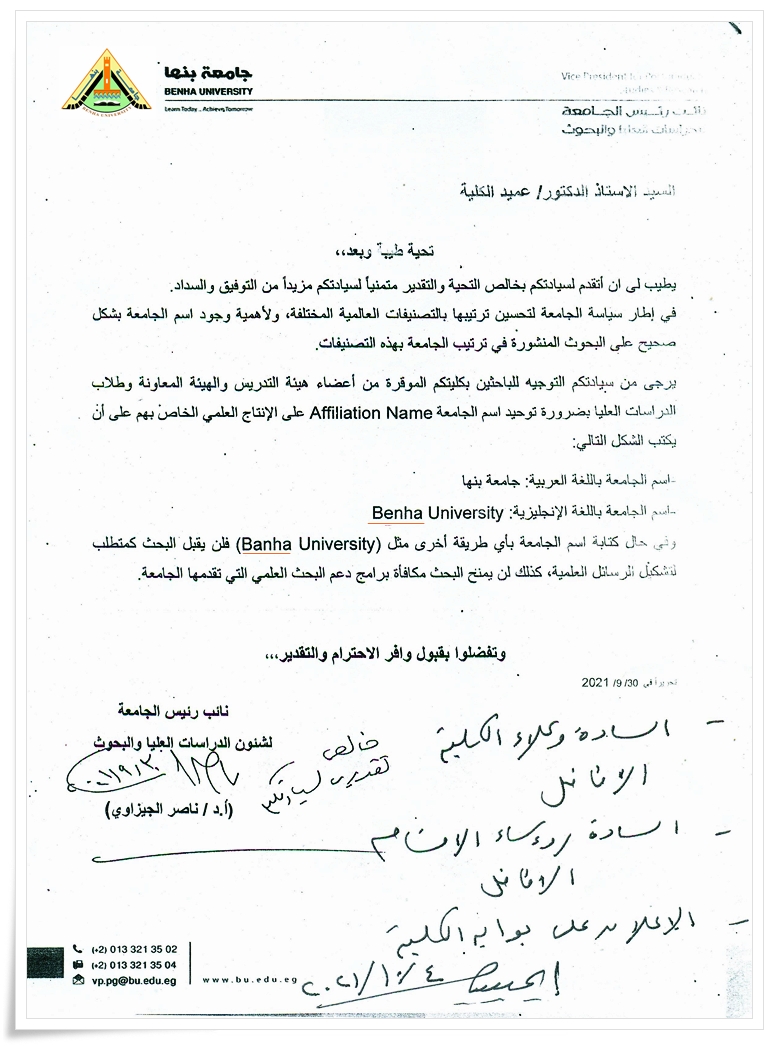 جامعة بنها
BENHA UNIVERSITY
Learn Today .. Achieve Tomorrow
Vice President for
نائب رئيس الجامعة
للدراسات العليا والبحوث
السيد الاستاذ الدكتور/ عميد الكلية
تحية طيبة وبعد،،
يطيب لى ان أتقدم لسيادتكم بخالص التحية والتقدير متمنياً لسيادتكم مزيداً من التوفيق والسداد.
في إطار سياسة الجامعة لتحسين ترتيبها بالتصنيفات العالمية المختلفة، ولأهمية وجود اسم الجامعة بشكل
صحيح على البحوث المنشورة في ترتيب الجامعة بهذه التصنيفات.
يرجى من سيادتكم التوجيه للباحثين بكليتكم الموقرة من أعضاء هيئة التدريس والهيئة المعاونة وطلاب
الدراسات العليا بضرورة توحيد اسم الجامعة Affiliation Name على الإنتاج العلمي الخاص بهم على أن
يكتب الشكل التالي:
-اسم الجامعة باللغة العربية: جامعة بنها
-اسم الجامعة باللغة الإنجليزية: Benha University
وفي حال كتابة اسم الجامعة بأي طريقة أخرى مثل (Banha University) فلن يقبل البحث كمتطلب
لتشكيل الرسائل العلمية، كذلك لن يمنح البحث مكافأة برامج دعم البحث العلمي التي تقدمها الجامعة.
وتفضلوا بقبول وافر الاحترام والتقدير،،،
تحريرا في 30/ 9/ 2021
نائب رئيس الجامعة
لشئون الدراسات العليا والبحوث
(أ.د / ناصر الجيزاوي)
خالص
تقديرى لسيادتكم
- السادة وكلاء الكلية
الافاضل
- السادة رؤساء الاقسام
الافاضل
- الإعلان على بوابة الكلية
٢٠٢١/١٠/٤
(+2) 013 321 35 02
(+2) 013 321 35 04
vp.pg@bu.edu.eg
www.bu.edu.eg